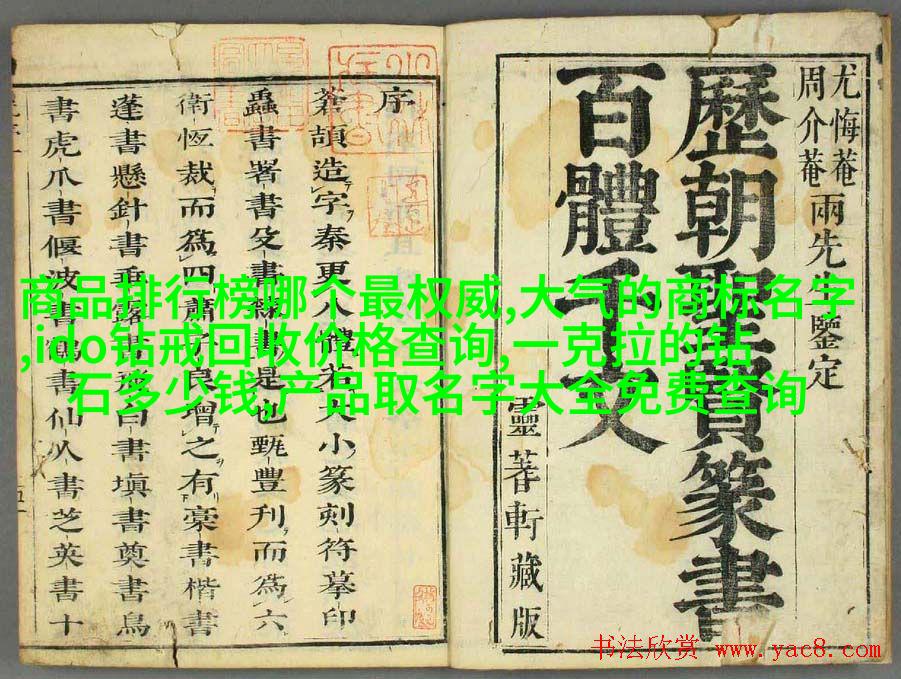 尤悔菴
周介菴兩先生鑒定
歷朝聖賢篆書
百體千文
靈蓍軒藏版
序
蒼頡造字秦更人
小篆刻符摹印
蟲書署書殳書
是也甄豐刋而爲六
衛恆裁而爲四肅
良增之有豪書楷書
蓬書懸針書垂露書
書塡書奠書鳥
書虎爪書偃波書鶴
書仙人書芝英書十
商品排行榜哪个最权威,大气的商标名字
,ido钻戒回收价格查询,一克拉的钻
石多少钱,产品取名字大全免费查询
书法欣赏 www.yac8.com